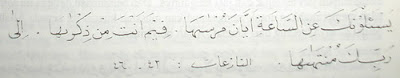 يَسْـَٔلُوْنَكَ عَنِ السَّاعَةِ اَيَّانَ مُرْسٰىهَا . فِيْمَ اَنْتَ مِنْ ذِكْرٰىهَا . اِلٰى
رَبِّكَ مُنْتَهٰىهَا . النازعات : ٤٢ - ٤٦